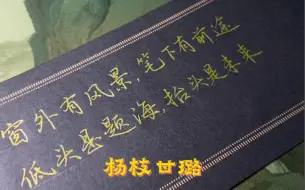 窗外有风景,笔下有前途
低头是题海,抬头是未来
杨枝甘璐